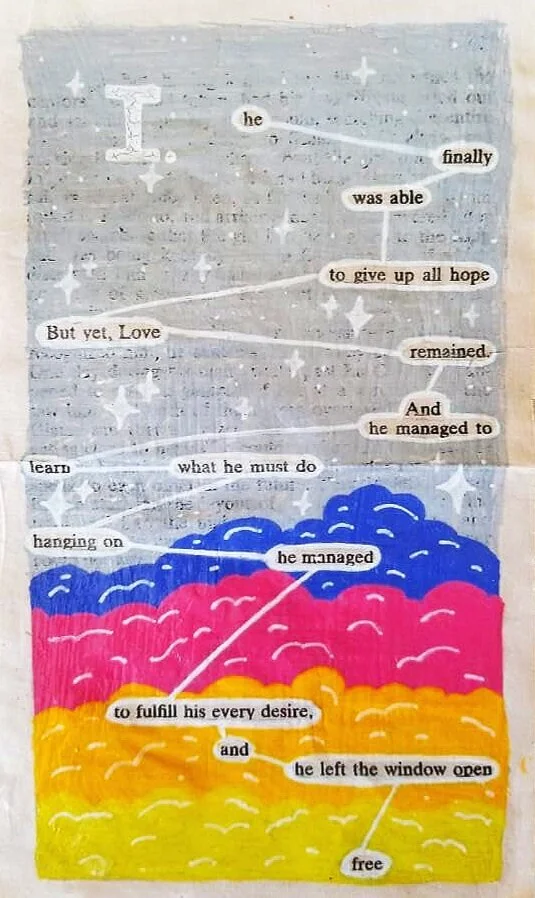 I.
he
finally
was able
to give up all hope
But yet, Love
remained.
And
he managed to
learn
what he must do
hanging on
he managed
to fulfill his every desire,
and
he left the window open
free